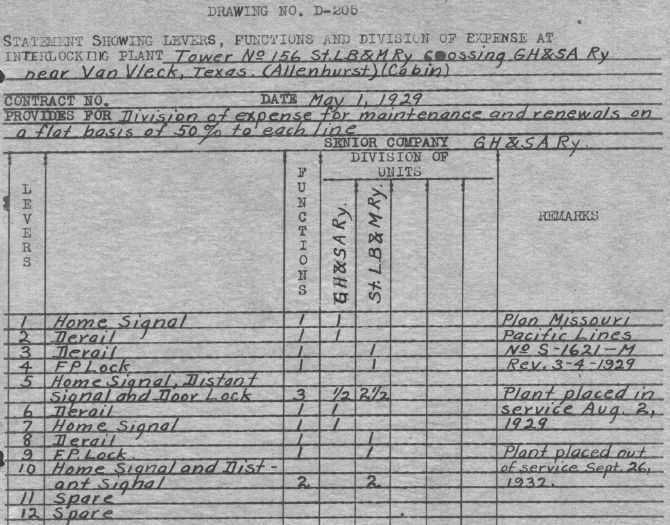 DRAWING NO. D-205
STATEMENT SHOWING LEVERS, FUNCTIONS AND DIVISION OF EXPENSE AT
INTERLOCKING PLANT Tower Nº 156 St.LB&M Ry Crossing GH&SA Ry
near Van Vleck, Texas. (Allenhurst) (Cabin)
CONTRACT NO. DATE May 1, 1929
PROVIDES FOR Division of expense for maintenance and renewals on
a flat basis of 50% to each line
SENIOR COMPANY GH&SA Ry.
LEVERS FUNCTIONS DIVISION OF
UNITS
GH&SA Ry. St. LB&M Ry. REMARKS
1 Home Signal 1 1 Plan Missouri
2 Derail 1 1 Pacific Lines
3 Derail 1 1 Nº S-1621-M
4 F.P. Lock 1 1 Rev. 3-4-1929
5 Home Signal, Distant
Signal and Door Lock 3 1/2 2 1/2 Plant placed in
6 Derail 1 1 service Aug. 2,
7 Home Signal 1 1 1929
8 Derail 1 1
9 F.P. Lock 1 1 Plant placed out
10 Home Signal and Dist- of service Sept. 26,
ant Signal 2 2 1932.
11 Spare
12 Spare